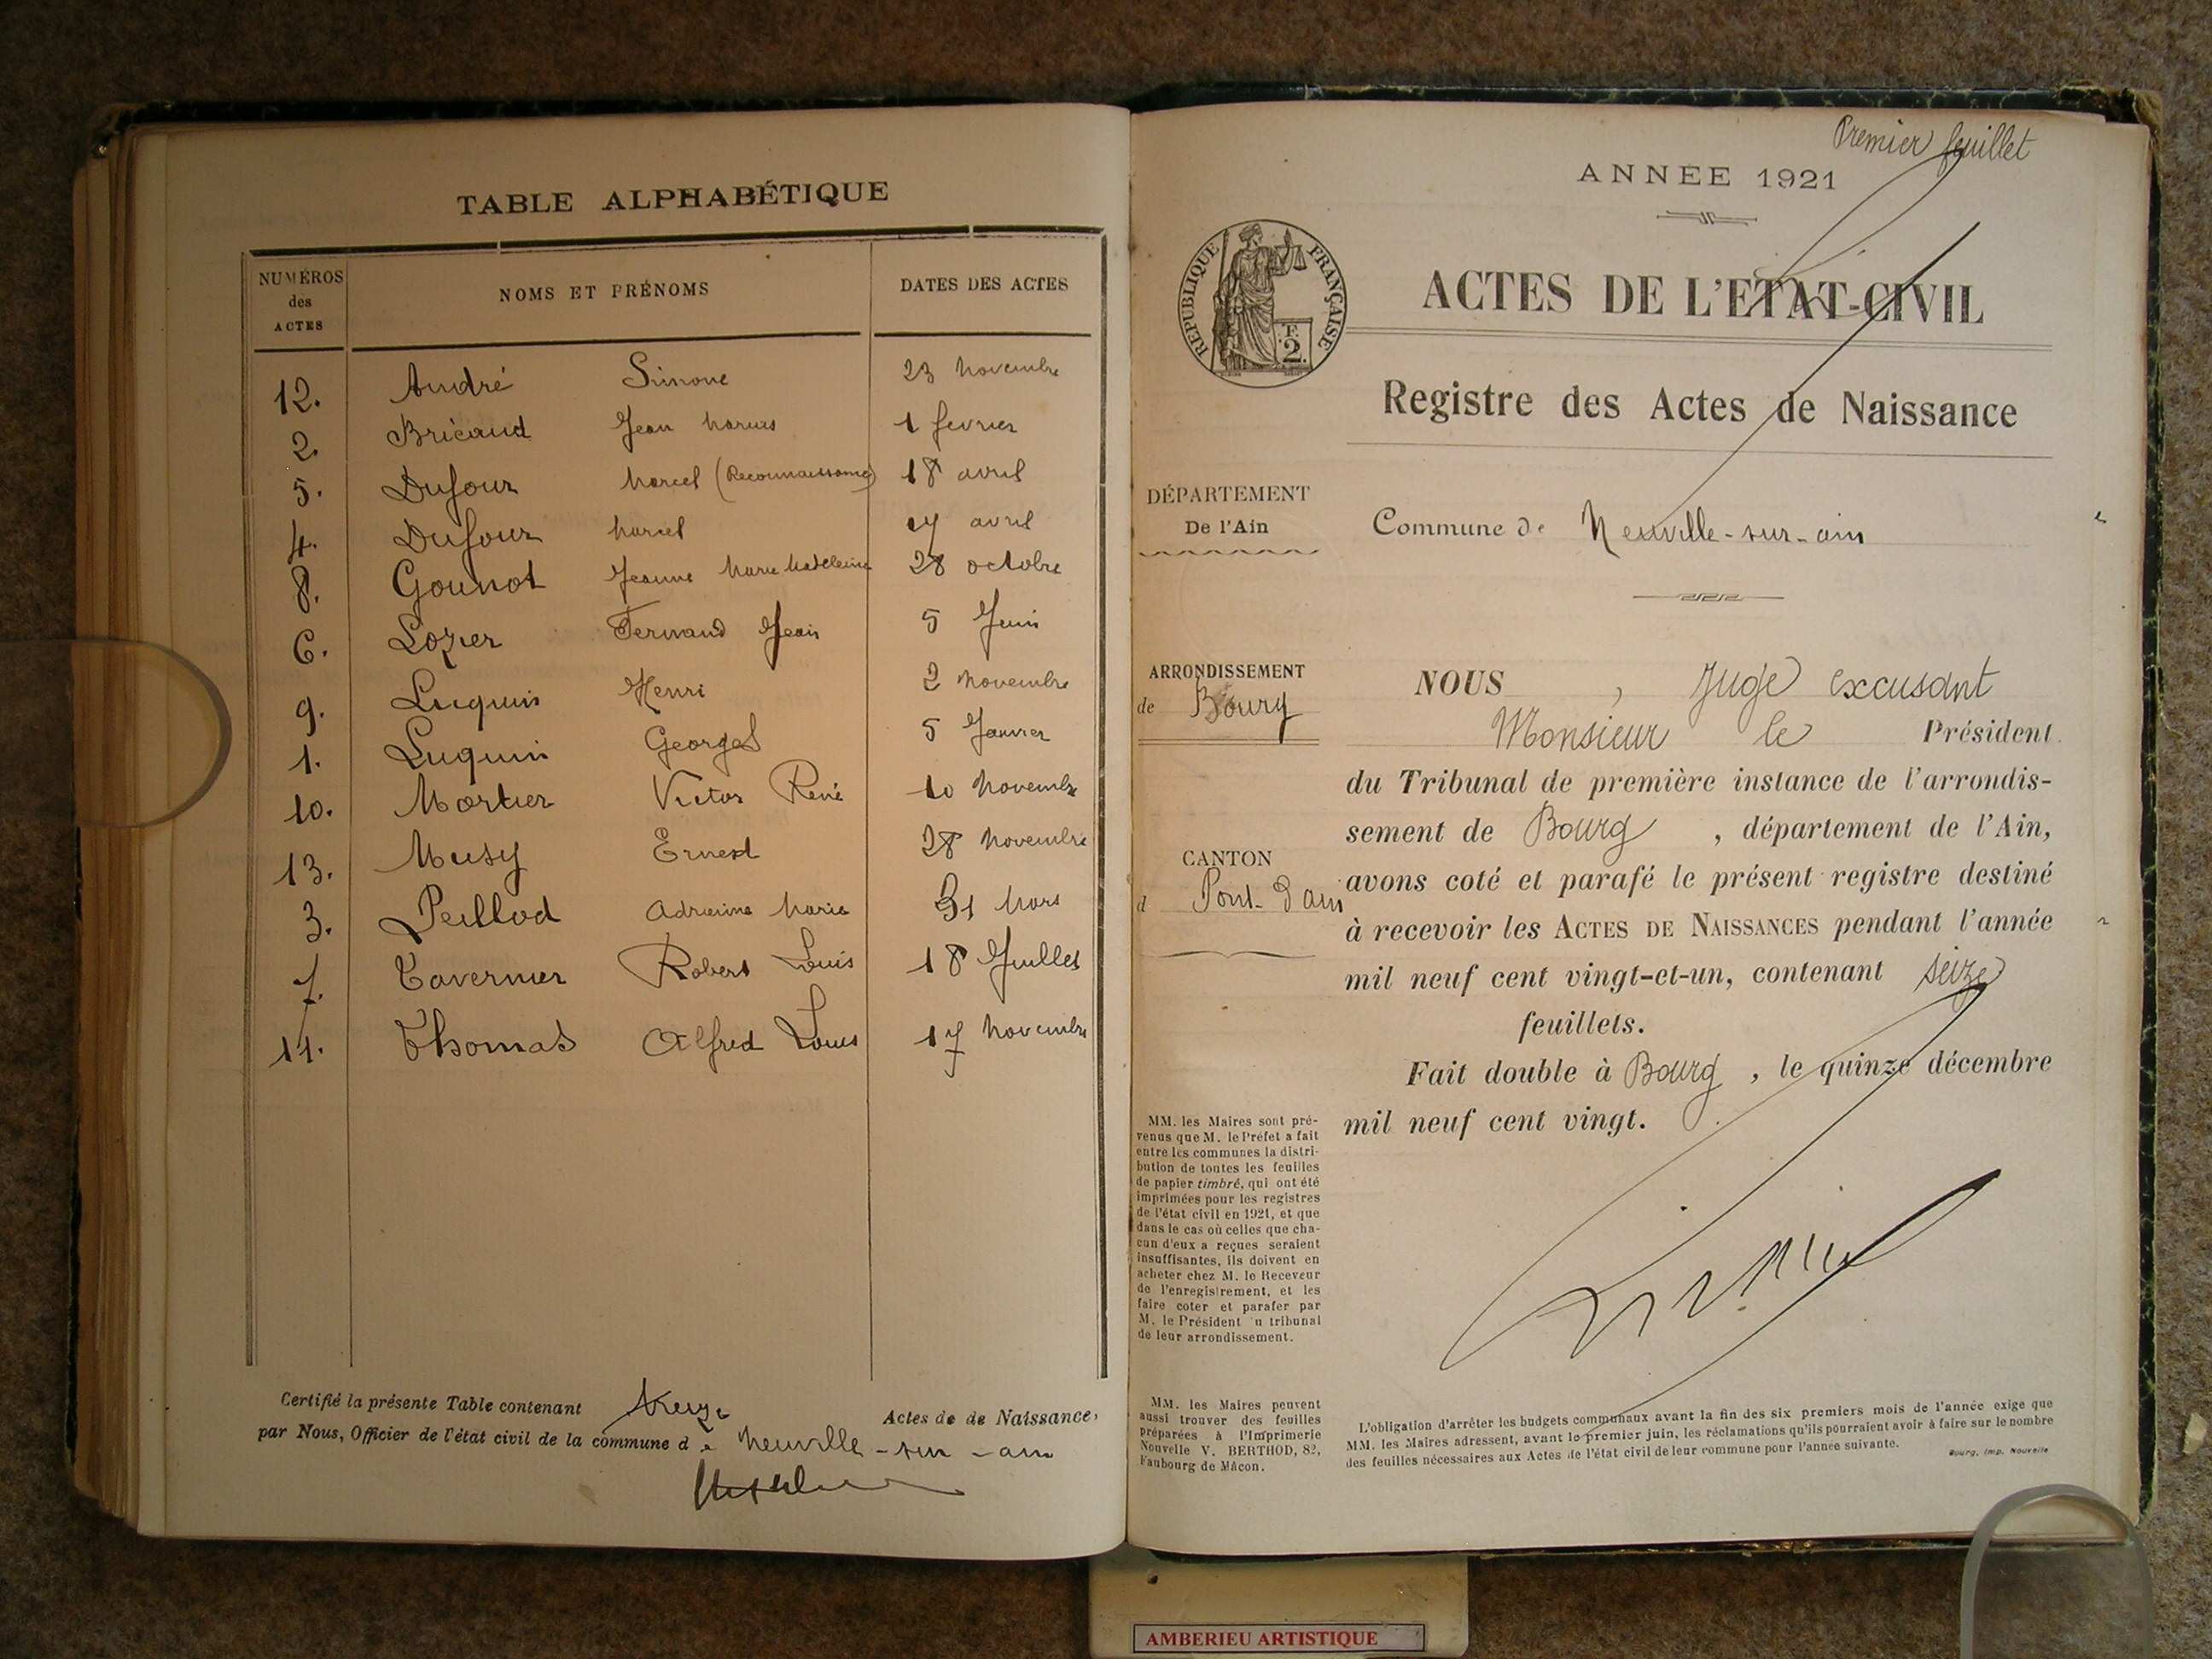 TABLE ALPHABÉTIQUE
NUMÉROS des ACTES NOMS ET PRÉNOMS DATES DES ACTES
12. André Simone 23 Novembre
2. Bricaud Jean Marius 1 fevrier
5. Dufour Marcel (Reconnaissance) 18 avril
4. Dufour Marcel avril
8. Gounot Jeanne Marie Madeleine 28 octobre
6. Lozier Fernand Jean 5 Juin
9. Luquin Henri 2 Novembre
1. Luquin Georges 5 Janvier
10. Mortier Victor René 10 Novembre
13. Musy Ernest 28 Novembre
3. Peillod Adrienne Marie 31 Mars
7. Tavernier Robert Louis 18 Juillet
11. Thomas Alfred Louis 17 Novembre
Certifié la présente Table contenant treize Actes de de Naissance,
par Nous, Officier de l'état civil de la commune de Neuville-sur-ain
Premier feuillet
ANNÉE 1921
RÉPUBLIQUE FRANÇAISE
F.
2.
ACTES DE L'ETAT-CIVIL
Registre des Actes de Naissance
DÉPARTEMENT
De l'Ain
Commune de Neuville-sur-ain
ARRONDISSEMENT
de Bourg
CANTON
d Pont-d'ain
NOUS , Juge excusant
Monsieur le Président
du Tribunal de première instance de l'arrondis-
sement de Bourg , département de l'Ain,
avons coté et parafé le présent registre destiné
à recevoir les ACTES DE NAISSANCES pendant l'année
mil neuf cent vingt-et-un, contenant seize
feuillets.
Fait double à Bourg , le quinze décembre
mil neuf cent vingt.
MM. les Maires sont pré-
venus que M. le Préfet a fait
entre les communes la distri-
bution de toutes les feuilles
de papier timbré, qui ont été
imprimées pour les registres
de l'état civil en 1921, et que
dans le cas où celles que cha-
cun d'eux a reçues seraient
insuffisantes, ils doivent en
acheter chez M. le Receveur
de l'enregistrement, et les
faire coter et parafer par
M. le Président u tribunal
de leur arrondissement.
MM. les Maires peuvent
aussi trouver des feuilles
préparées à l'Imprimerie
Nouvelle V. BERTHOD, 82,
Faubourg de Mâcon.
L'obligation d'arrêter les budgets communaux avant la fin des six premiers mois de l'année exige que
MM. les Maires adressent, avant le premier juin, les réclamations qu'ils pourraient avoir à faire sur le nombre
des feuilles nécessaires aux Actes de l'état civil de leur commune pour l'année suivante.
Bourg, Imp. Nouvelle
AMBERIEU ARTISTIQUE